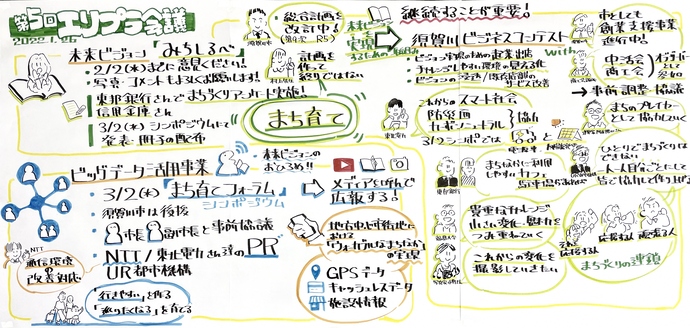 第5回エリプラ会議
2022.1.26
未来ビジョン「みちしるべ」
・2/2(水)までに意見ください!
・写真・コメントもよろしくお願いします!
・東邦銀行さんでまちづくりアンケート実施!
信用金庫さん
・3/2(水)シンポジウムにて
発表・冊子の配布
・総合計画を
改訂中!
(第9次 R5)
計画を
作って
終りではない
まち育て
未来ビジョン
を実現
するための
継続することが重要!
須賀川ビジネスコンテスト
・ビジョン実現のための起業創出
・チャレンジしやすい環境の見える化
・ビジョンの浸透/既存店舗の
サービス改善
with
市としても
創業支援事業
進行中!
中活会
商工会
オブザーバー
として
参加
→事前調整・協議
これからのスマート社会
防災面
カーボンニュートラル
協働
3/2シンポでは
まちのプレイヤー
として協力したい
まちなかに利用
しやすいカフェ
ひとりでまちづくりは
できない
一人一人自分ごとにして
皆で協力して作り上げる
貴重なチャレンジ
小さい変化・関わりを
つみ重ねていく
これからの変化を
撮影していきたい
応援する人
頑張る人
まちづくりの連鎖
ビッグデータ活用事業
・3/2(水)「まち育てフォーラム」
シンポジウム
・須賀川市は後援
・市長・副市長と事前協議
・NTT/東北電力さん達のPR
UR都市機構
未来ビジョンの
おひろめ!!
メディアとも組んで
広報する。
NTT
通信環境
の
改善対応
「行きやすい」を作る
「通りたくなる」を育てる
地方中心市街地に
おける
「ウォーカブルなまちなか」
の実現
GPSデータ
キャッシュレスデータ
施設情報